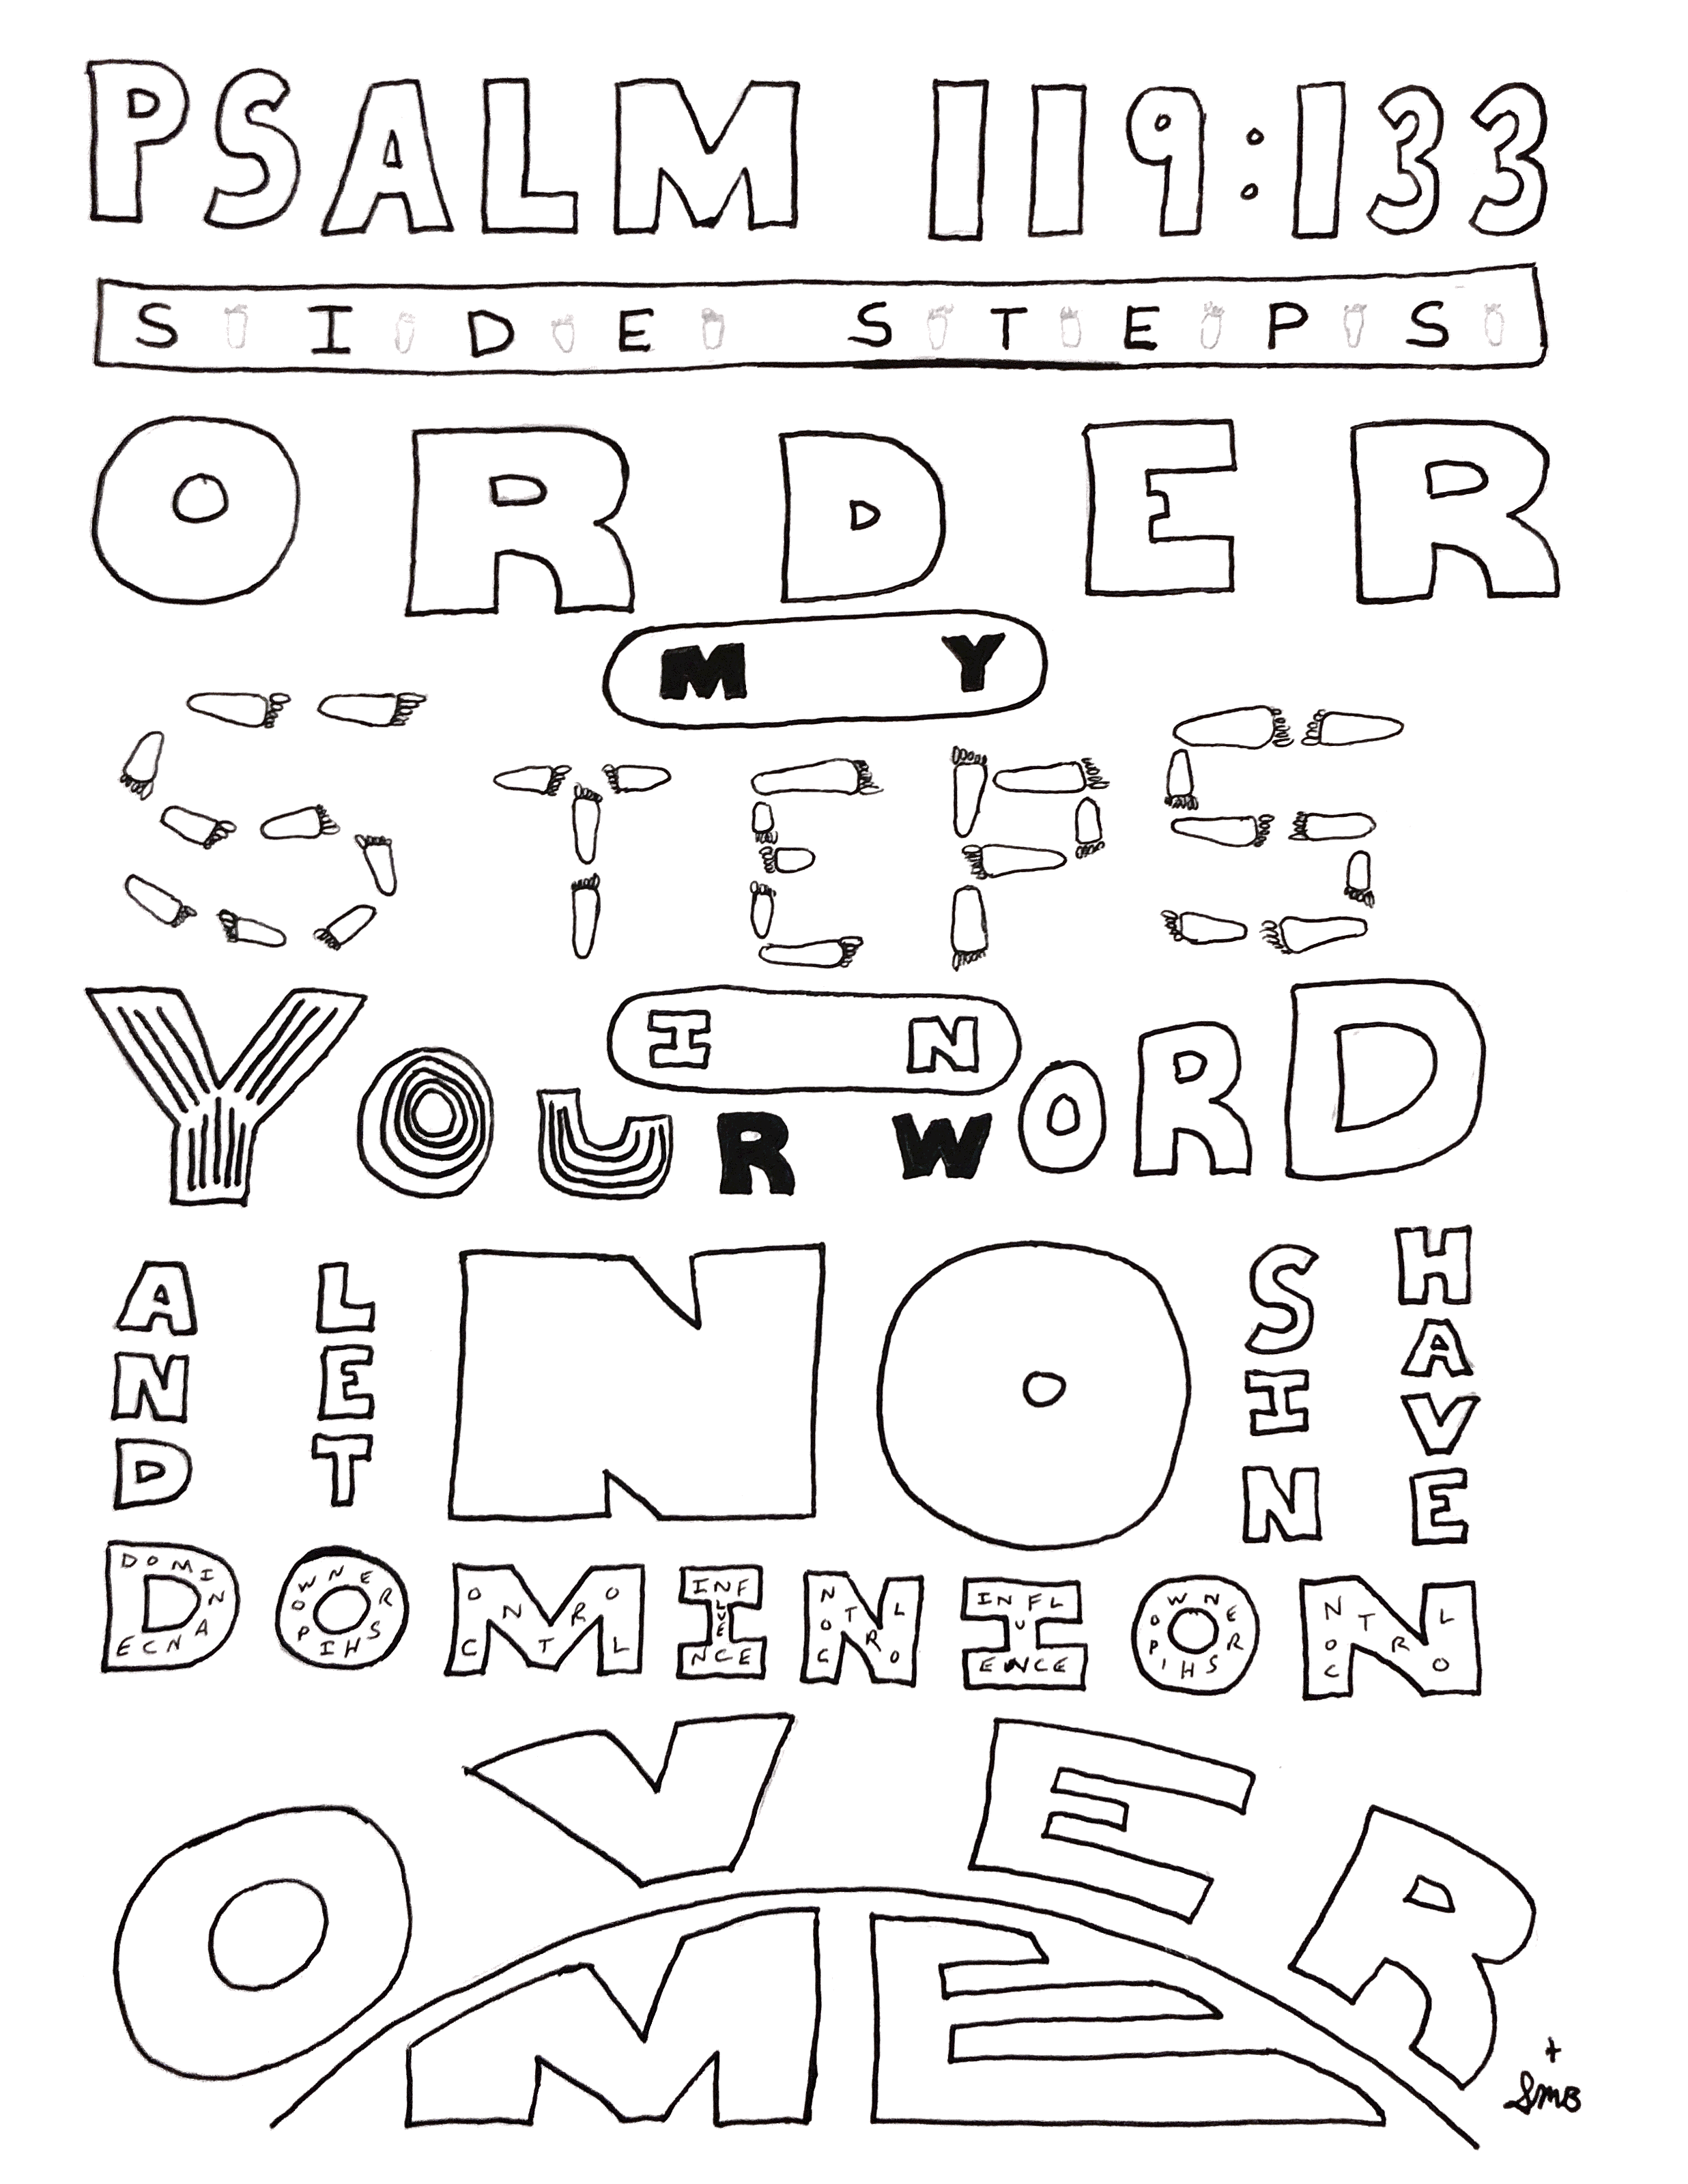 PSALM 119:133
SIDE STEPS
ORDER
MY
STEPS
IN
YOUR WORD
AND LET NO SIN HAVE
DOMINION
DOMINANCE OWNERSHIP CONTROL INFLUENCE CONTROL INFLUENCE OWNERSHIP CONTROL
OVER
ME
SMB